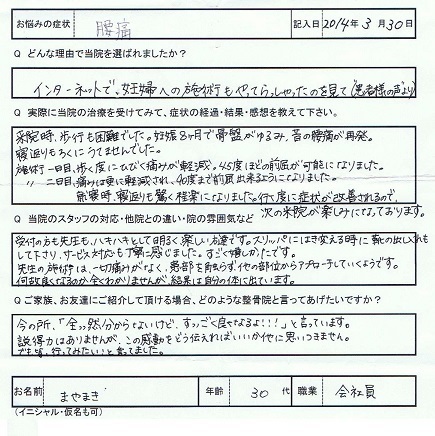 お悩みの症状 腰痛 記入日 2014年3月30日
Q どんな理由で当院を選ばれましたか?
インターネットで、妊婦への施術もやってらっしゃったのを見て(患者様の声より)
Q 実際に当院の治療を受けてみて、症状の経過・結果・感想を教えて下さい。
来院時、歩行も困難でした。妊娠8ヶ月で骨盤がゆるみ、昔の腰痛が再発。
寝返りもろくにうてませんでした。
施術一日目、歩く度にひびく痛みが軽減。45度までの前屈が可能になりました。
〃 二日目、痛みは更に軽減され、90度まで前屈出来るようになりました。
就寝時、寝返りも驚く程楽になりました。行く度に症状が改善されるので、
次の来院が楽しみになっております。
Q 当院のスタッフの対応・他院との違い・院の雰囲気など
受付の方も先生も、ハキハキとして明るく楽しい方達です。スリッパにはき変える時に靴の出し入れも
して下さり、サービス対応も丁寧に感じました。すごく嬉しかったです。
先生の施術は、一切痛みがなく、患部を触らず他の部位からアプローチしていくようです。
何故良くなるのか全くわかりませんが、結果は自分の体に出ています。
Q ご家族、お友達にご紹介して頂ける場合、どのような整骨院と言ってあげたいですか?
今の所、「全っ然分からないけど、すっごく良くなるよ!!!」と言っています。
説得力はありませんが、この感動をどう伝えればいいか他に思いつきません。
でも皆、行ってみたいと言ってました。
お名前 まやまき 年齢 30代 職業 会社員
(イニシャル・仮名も可)